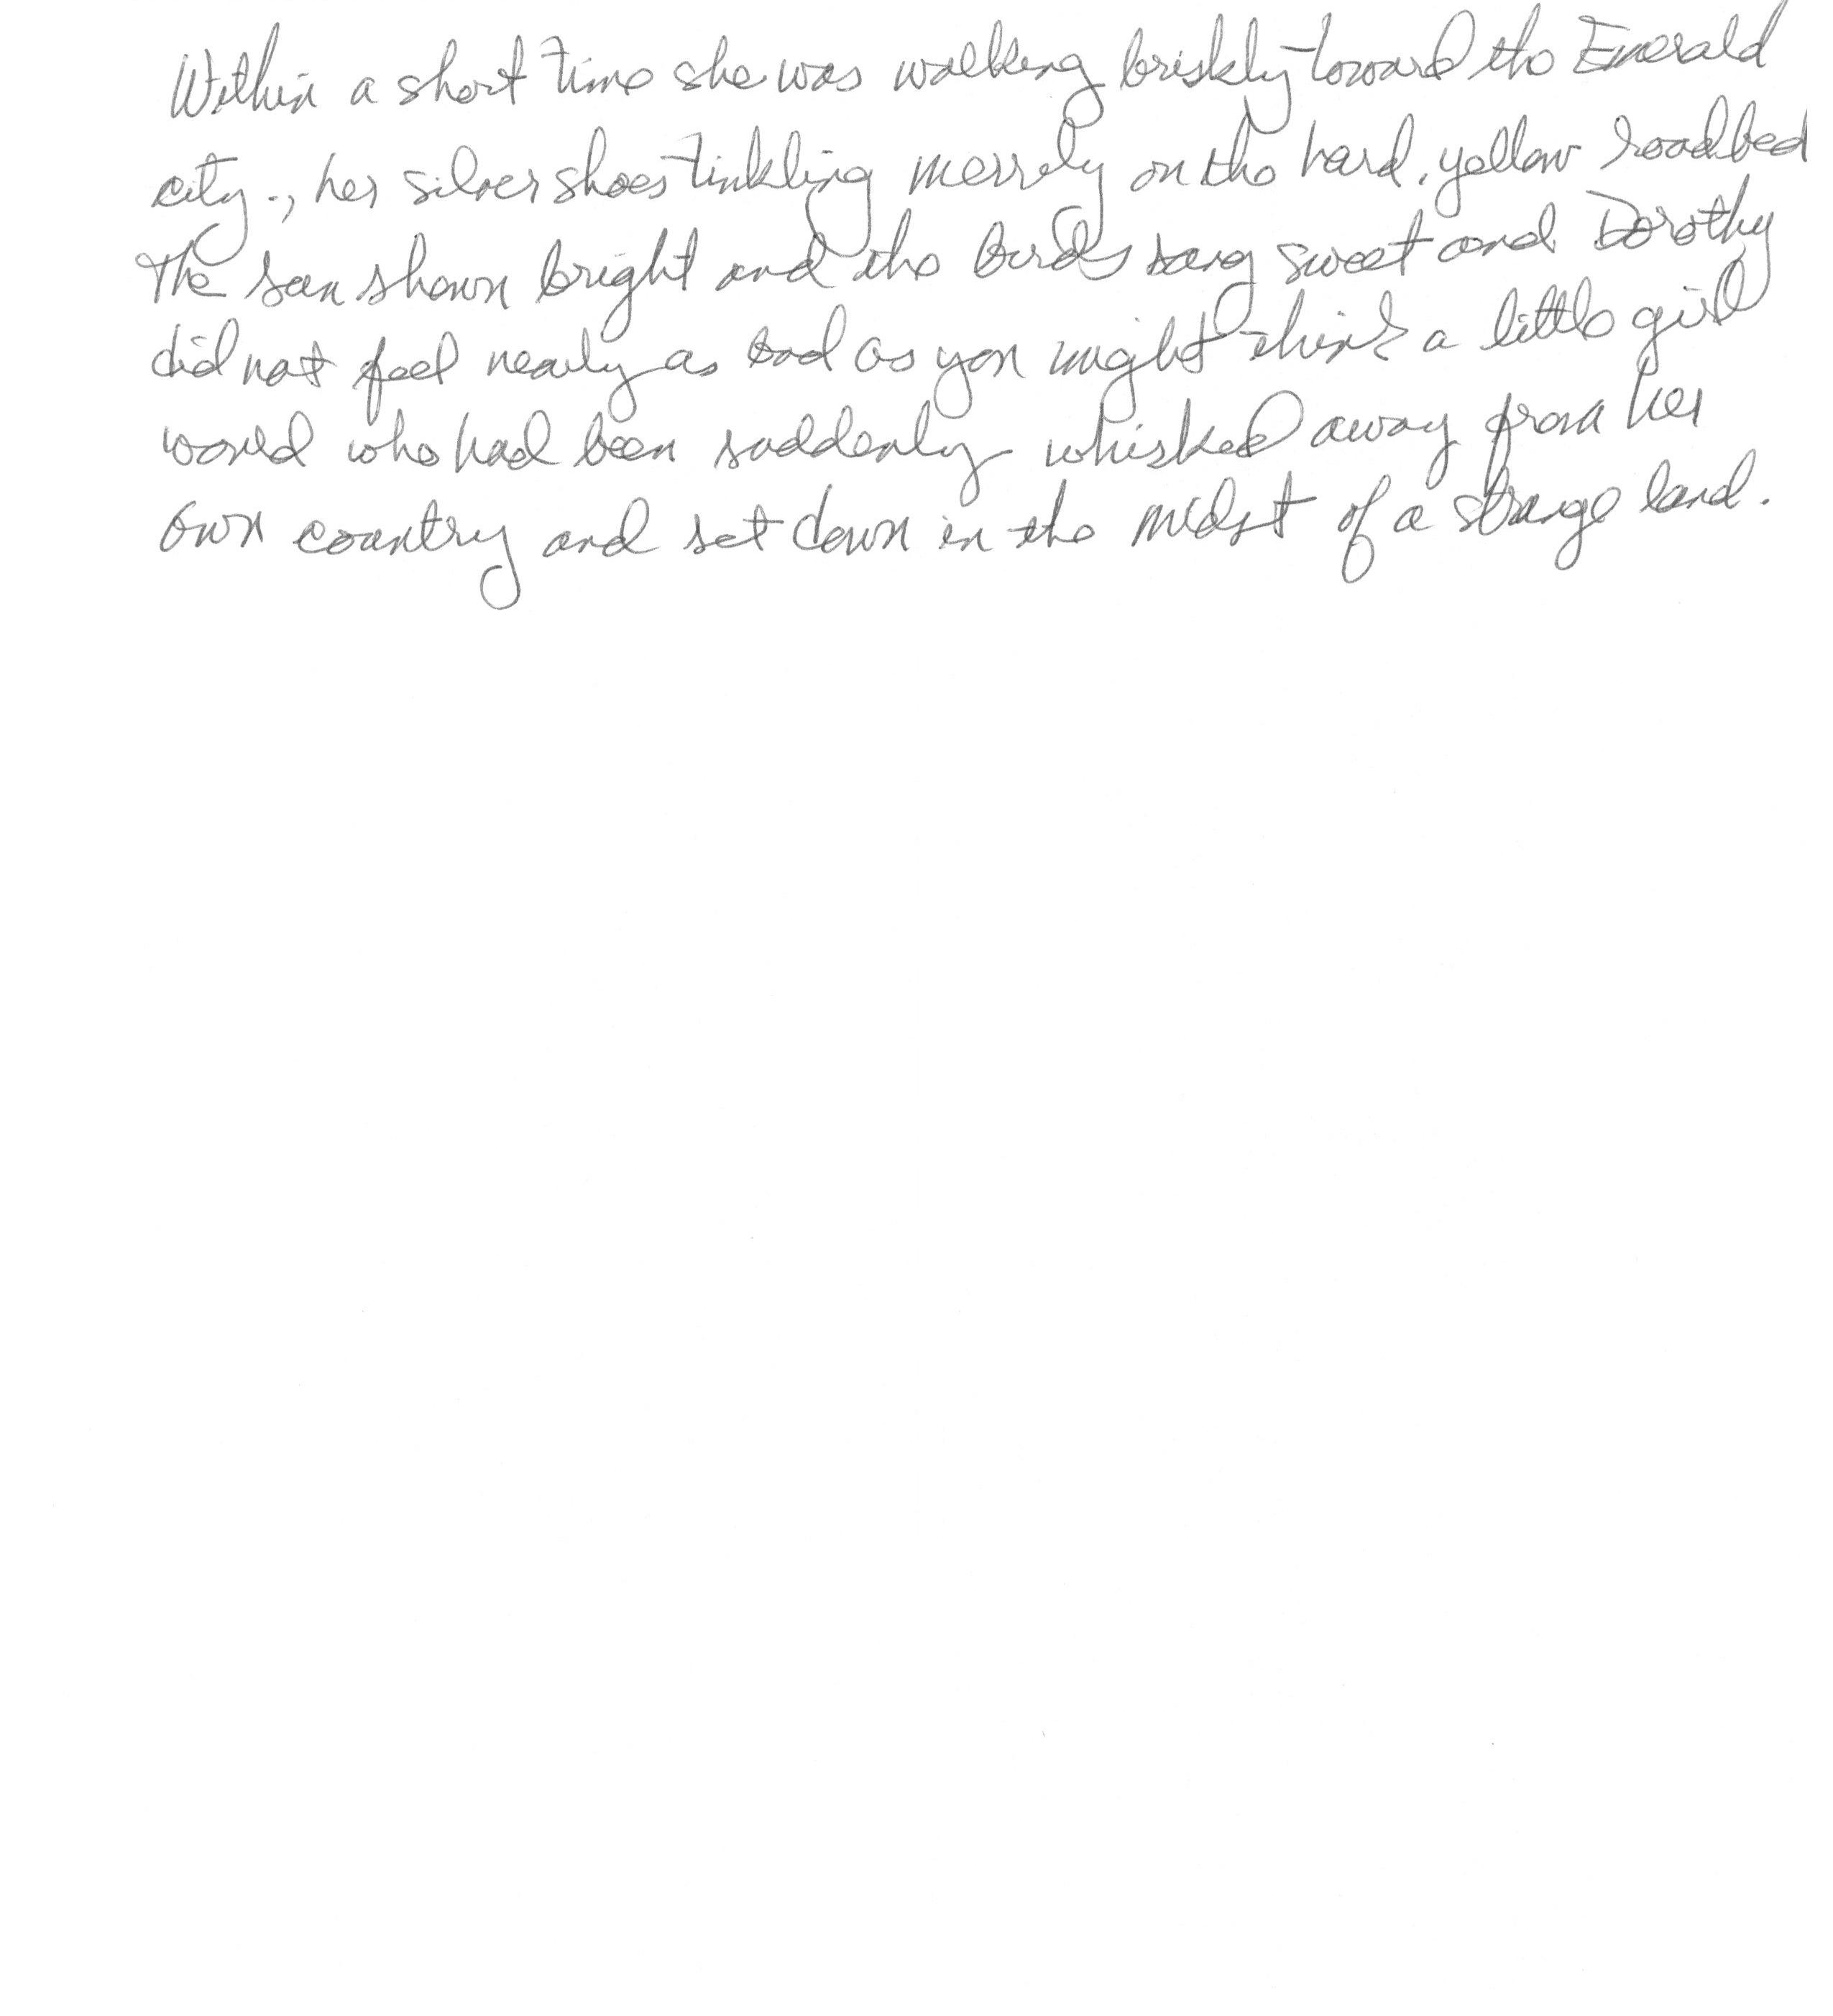 Within a short time she was walking briskly toward the Emerald
city., her silver shoes tinkling merrely on the hard, yellow roadbed
The sun shown bright and the birds sang sweet and Dorothy
did not feel nearly as bad as you might think a little girl
would who had been suddenly whisked away from her
own country and set down in the midst of a strange land.